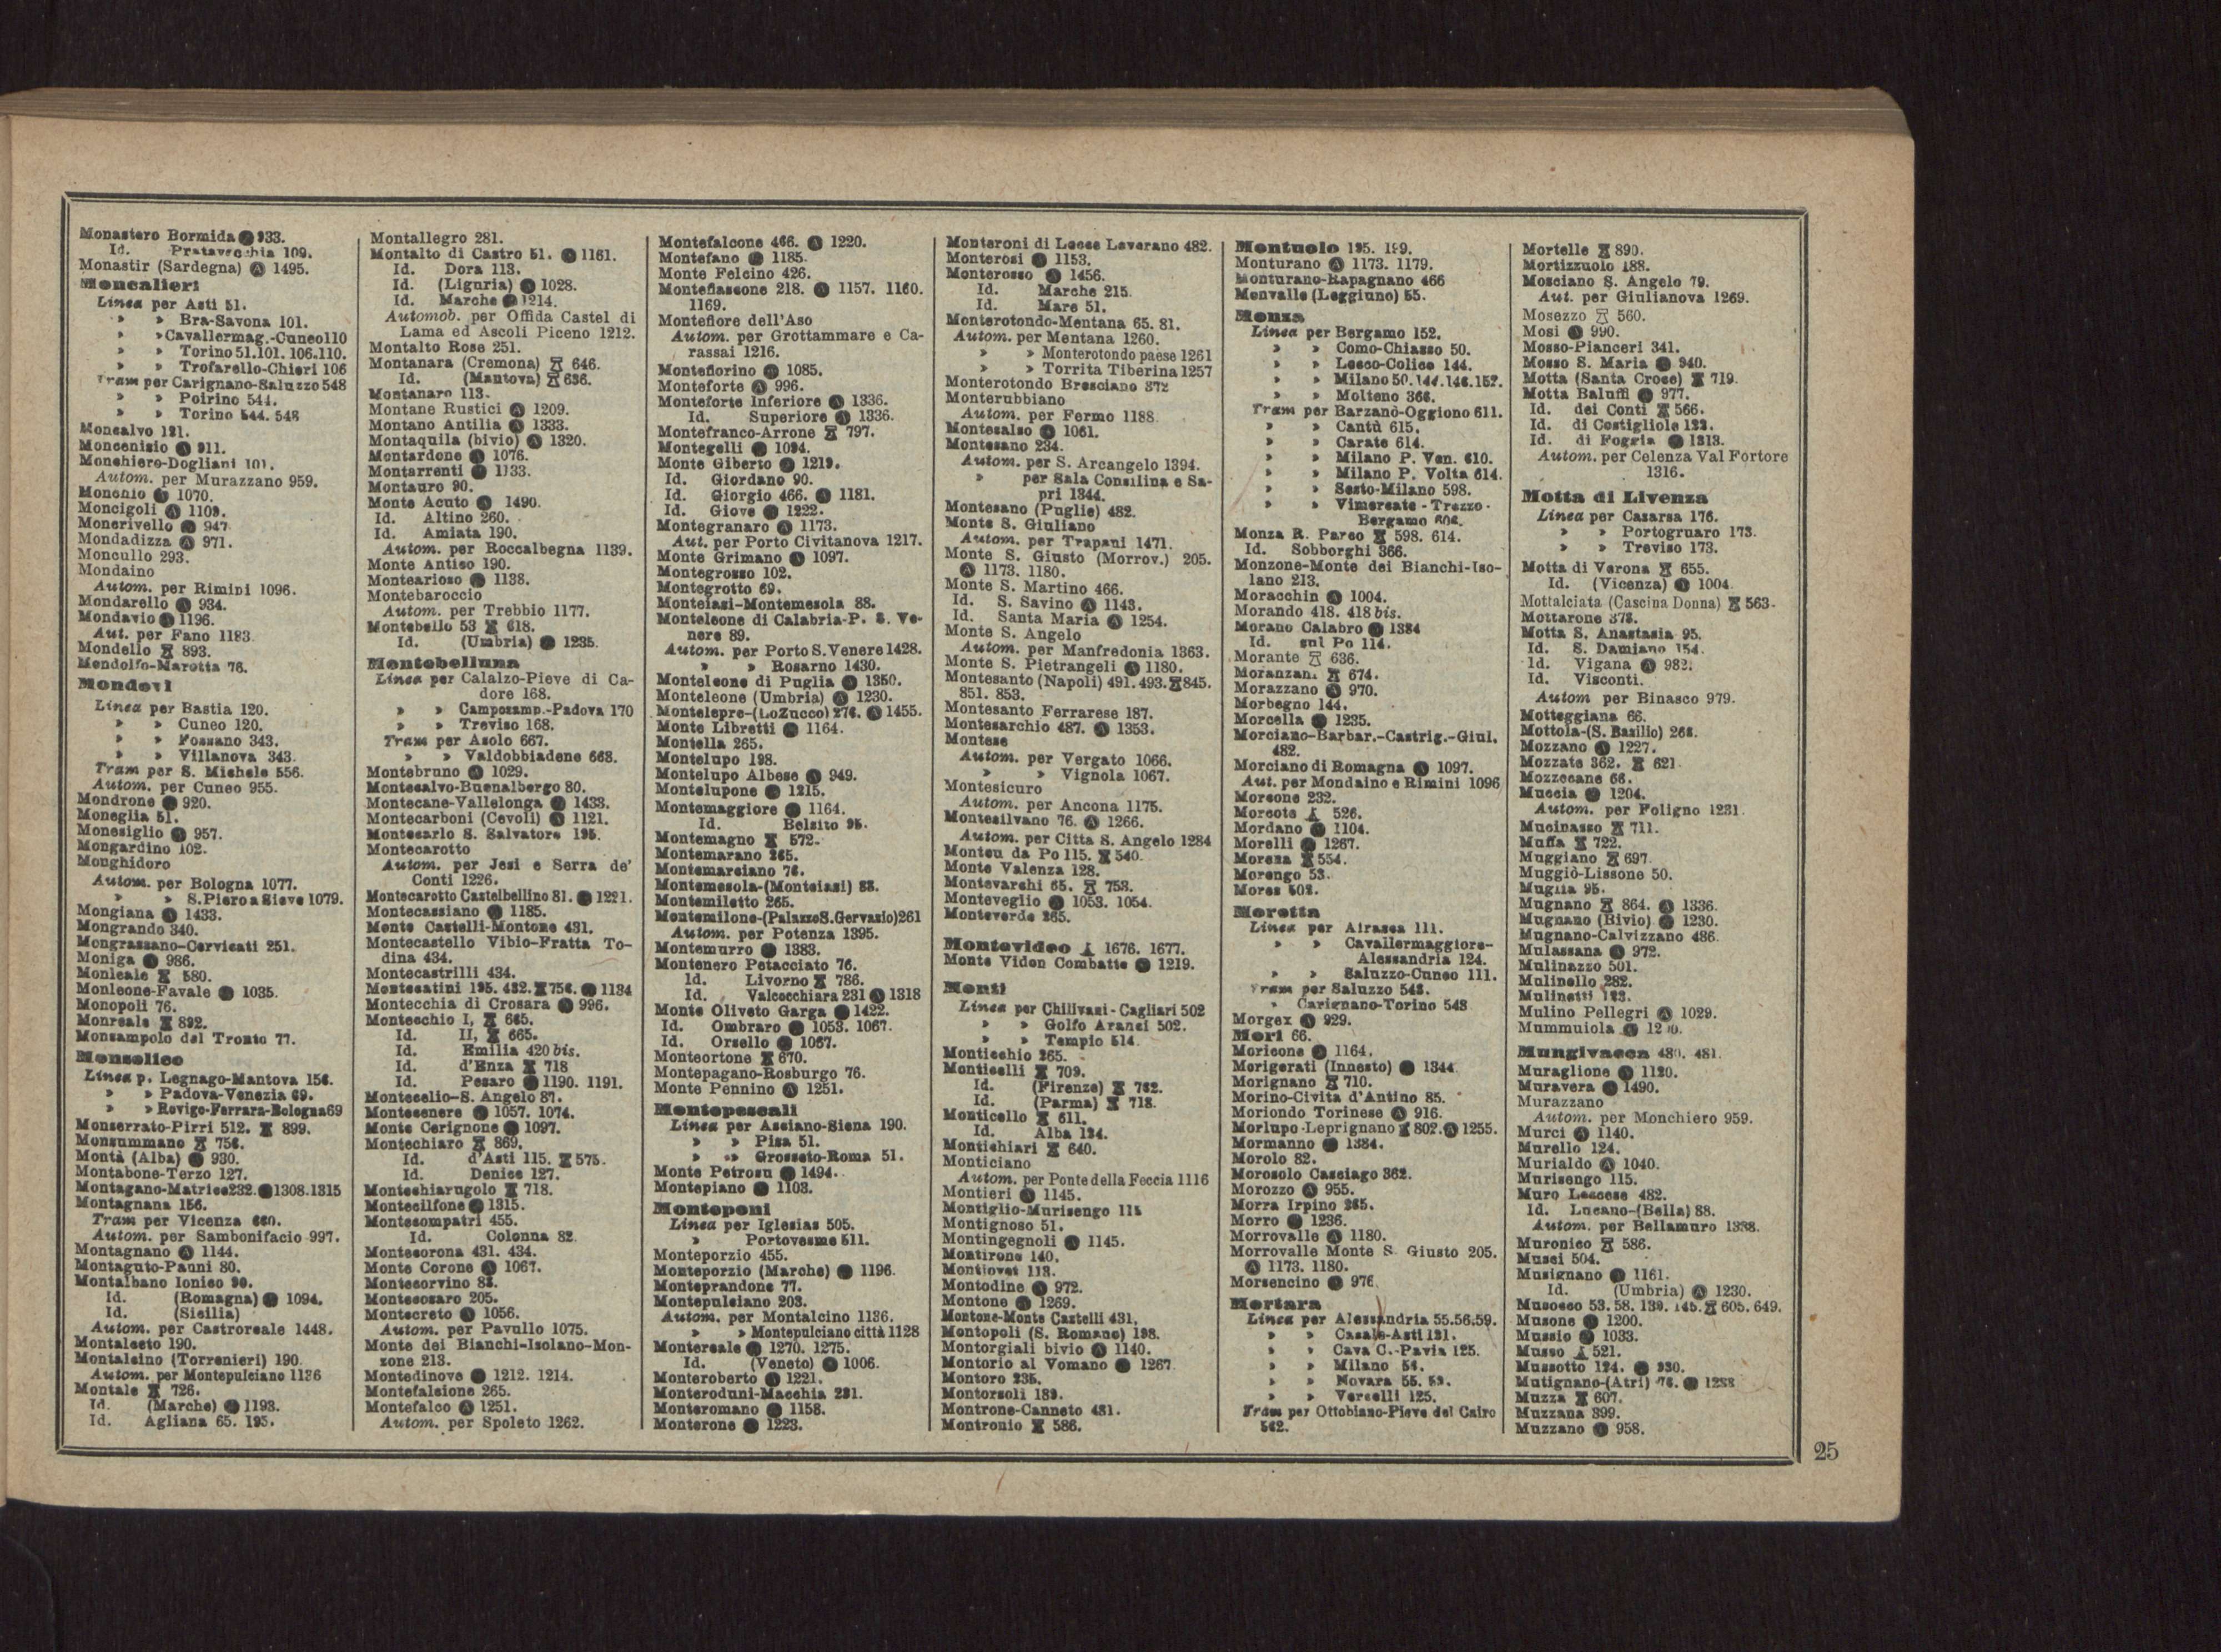 Monastero Bormida 🅐 933.
Id. Pratavecchia 109.
Monastir (Sardegna) 🅐 1495.
Moncalieri
Linea per Asti 51.
» » Bra-Savona 101.
» » Cavallermag.-Cuneo 110
» » Torino 51. 101. 106. 110.
» » Trofarello-Chieri 106
Tram per Carignano-Saluzzo 548
» » Poirino 544.
» » Torino 544. 548
Moncalvo 121.
Moncenisio 🅐 911.
Monchiero-Dogliani 101.
Autom. per Murazzano 959.
Monchio 1070.
Moncigoli 🅐 1109.
Moncrivello 947
Mondadizza 🅐 971.
Moncullo 293.
Mondaino
Autom. per Rimini 1096.
Mondarello 🅐 934.
Mondavio 1196.
Aut. per Fano 1183
Mondello 893.
Mondolfo-Marotta 76.
Mondovì
Linea per Bastia 120.
» » Cuneo 120.
» » Fossano 343.
» » Villanova 343.
Tram per S. Michele 556.
Autom. per Cuneo 955.
Mondrone 920.
Moneglia 51.
Monesiglio 957.
Mongardino 102.
Monghidoro
Autom. per Bologna 1077.
» » S. Piero a Sieve 1079.
Mongiana 🅐 1433.
Mongrando 340.
Mongrassano-Cervicati 251.
Moniga 986.
Monleale 580.
Monleone-Favale 1035.
Monopoli 76.
Monreale 892.
Monsampolo del Tronto 77.
Monselice
Linea p. Legnago-Mantova 156.
» » Padova-Venezia 69.
» » Rovigo-Ferrara-Bologna 69
Monserrato-Pirri 512. 899.
Monsummano 756.
Montà (Alba) 930.
Montabone-Terzo 127.
Montagano-Matrice 232. 1308. 1315
Montagnana 156.
Tram per Vicenza 660.
Autom. per Sambonifacio 997.
Montagnano 🅐 1144.
Montaguto-Panni 80.
Montalbano Ionico 90.
Id. (Romagna) 1094.
Id. (Sicilia)
Autom. per Castroreale 1448.
Montalceto 190.
Montalcino (Torrenieri) 190
Autom. per Montepulciano 1136
Montale 726.
Id. (Marche) 1193.
Id. Agliana 65. 195.
Montallegro 281.
Montalto di Castro 51. 1161.
Id. Dora 113.
Id. (Liguria) 1028.
Id. Marche 1214.
Automob. per Offida Castel di
Lama ed Ascoli Piceno 1212.
Montalto Rose 251.
Montanara (Cremona) 646.
Id. (Mantova) 636.
Montanaro 113.
Montane Rustici 🅐 1209.
Montano Antilia 🅐 1333.
Montaquila (bivio) 🅐 1320.
Montardone 1076.
Montarrenti 1133.
Montauro 90.
Monte Acuto 1490.
Id. Altino 260.
Id. Amiata 190.
Autom. per Roccalbegna 1139.
Monte Antico 190.
Montearioso 1138.
Montebaroccio
Autom. per Trebbio 1177.
Montebello 53 618.
Id. (Umbria) 1235.
Montebelluna
Linea per Calalzo-Pieve di Ca-
dore 168.
» » Camposamp.-Padova 170
» » Treviso 168.
Tram per Asolo 667.
» » Valdobbiadene 668.
Montebruno 🅐 1029.
Montecalvo-Buonalbergo 80.
Montecane-Vallelonga 1433.
Montecarboni (Cevoli) 🅐 1121.
Montecarlo S. Salvatore 195.
Montecarotto
Autom. per Jesi e Serra de'
Conti 1226.
Montecarotto Castelbellino 81. 1221.
Montecassiano 1185.
Monte Castelli-Montone 431.
Montecastello Vibio-Fratta To-
dina 434.
Montecastrilli 434.
Montecatini 195. 432. 756. 1134
Montecchia di Crosara 🅐 996.
Montecchio I, 665.
Id. II, 665.
Id. Emilia 420 bis.
Id. d'Enza 718
Id. Pesaro 1190. 1191.
Montecelio-S. Angelo 87.
Montecenere 1057. 1074.
Monte Cerignone 1097.
Montechiaro 869.
Id. d'Asti 115. 575.
Id. Denice 127.
Montechiarugolo 718.
Montecilfone 1315.
Montecompatri 455.
Id. Colonna 82
Montecorona 431. 434.
Monte Corone 🅐 1067.
Montecorvino 83.
Montecosaro 205.
Montecreto 🅐 1056.
Autom. per Pavullo 1075.
Monte dei Bianchi-Isolano-Mon-
zone 213.
Montedinove 1212. 1214.
Montefalcione 265.
Montefalco 🅐 1251.
Autom. per Spoleto 1262.
Montefalcone 466. 🅐 1220.
Montefano 1185.
Monte Felcino 426.
Montefiascone 218. 1157. 1160.
1169.
Montefiore dell'Aso
Autom. per Grottammare e Ca-
rassai 1216.
Montefiorino 1085.
Monteforte 🅐 996.
Monteforte Inferiore 🅐 1336.
Id. Superiore 🅐 1336.
Montefranco-Arrone 797.
Montegelli 1094.
Monte Giberto 1219.
Id. Giordano 90.
Id. Giorgio 466. 🅐 1181.
Id. Giove 1222.
Montegranaro 🅐 1173.
Aut. per Porto Civitanova 1217.
Monte Grimano 🅐 1097.
Montegrosso 102.
Montegrotto 69.
Monteiasi-Montemesola 88.
Monteleone di Calabria-P. S. Ve-
nere 89.
Autom. per Porto S. Venere 1428.
» » Rosarno 1430.
Monteleone di Puglia 1350.
Monteleone (Umbria) 🅐 1230.
Montelepre-(Lo Zucco) 276. 🅐 1455.
Monte Libretti 1164.
Montella 265.
Montelupo 198.
Montelupo Albese 🅐 949.
Montelupone 1215.
Montemaggiore 1164.
Id. Belsito 95.
Montemagno 572.
Montemarano 265.
Montemarciano 76.
Montemesola-(Monteiasi) 88.
Montemiletto 265.
Montemilone-(Palazzo S. Gervasio) 261
Autom. per Potenza 1395.
Montemurro 1383.
Montenero Petacciato 76.
Id. Livorno 786.
Id. Valcocchiara 231 🅐 1318
Monte Oliveto Garga 1422.
Id. Ombraro 1053. 1067.
Id. Orsello 1067.
Monteortone 670.
Montepagano-Rosburgo 76.
Monte Pennino 🅐 1251.
Montepescali
Linea per Asciano-Siena 190.
» » Pisa 51.
» » Grosseto-Roma 51.
Monte Petrosu 1494.
Montepiano 1103.
Monteponi
Linea per Iglesias 505.
» Portovesme 511.
Monteporzio 455.
Monteporzio (Marche) 1196.
Monteprandone 77.
Montepulciano 203.
Autom. per Montalcino 1136.
» » Montepulciano città 1128
Montereale 1270. 1275.
Id. (Veneto) 1006.
Monteroberto 🅐 1221.
Monteroduni-Macchia 231.
Monteromano 1158.
Monterone 1223.
Monteroni di Lecce Leverano 482.
Monterosi 1153.
Monterosso 🅐 1456.
Id. Marche 215.
Id. Mare 51.
Monterotondo-Mentana 65. 81.
Autom. per Mentana 1260.
» » Monterotondo paese 1261
» » Torrita Tiberina 1257
Monterotondo Bresciano 372
Monterubbiano
Autom. per Fermo 1188
Montesalso 1061.
Montesano 234.
Autom. per S. Arcangelo 1394.
» per Sala Consilina e Sa-
pri 1344.
Montesano (Puglie) 482.
Monte S. Giuliano
Autom. per Trapani 1471.
Monte S. Giusto (Morrov.) 205.
🅐 1173. 1180.
Monte S. Martino 466.
Id. S. Savino 🅐 1143.
Id. Santa Maria 🅐 1254.
Monte S. Angelo
Autom. per Manfredonia 1363.
Monte S. Pietrangeli 🅐 1180.
Montesanto (Napoli) 491. 493. 845.
851. 853.
Montesanto Ferrarese 187.
Montesarchio 487. 🅐 1353.
Montese
Autom. per Vergato 1066.
» » Vignola 1067.
Montesicuro
Autom. per Ancona 1175.
Montesilvano 76. 🅐 1266.
Autom. per Citta S. Angelo 1284
Monteu da Po 115. 540.
Monte Valenza 128.
Montevarchi 65. 753.
Monteveglio 1053. 1054.
Monteverde 265.
Montevideo 1676. 1677.
Monte Vidon Combatte 1219.
Monti
Linea per Chilivani-Cagliari 502
» » Golfo Aranci 502.
» » Tempio 514
Monticchio 265.
Monticelli 709.
Id. (Firenze) 782.
Id. (Parma) 718.
Monticello 611.
Id. Alba 124.
Montichiari 640.
Monticiano
Autom. per Ponte della Feccia 1116
Montieri 🅐 1145.
Montiglio-Murisengo 115
Montignoso 51.
Montingegnoli 1145.
Montirone 140.
Montjovet 113.
Montodine 🅐 972.
Montone 1269.
Montone-Monte Castelli 431.
Montopoli (S. Romano) 198.
Montorgiali bivio 🅐 1140.
Montorio al Vomano 1267
Montoro 235.
Montorsoli 189.
Montrone-Canneto 481.
Montronio 586.
Montuolo 195. 199.
Monturano 🅐 1173. 1179.
Monturano-Rapagnano 466
Monvalle (Leggiuno) 55.
Monza
Linea per Bergamo 152.
» » Como-Chiasso 50.
» » Lecco-Colico 144.
» » Milano 50. 144. 146. 152.
» » Molteno 366.
Tram per Barzanò-Oggiono 611.
» » Cantù 615.
» » Carate 614.
» » Milano P. Ven. 610.
» » Milano P. Volta 614.
» » Sesto-Milano 598.
» » Vimercate-Trezzo-
Bergamo 606.
Monza R. Parco 598. 614.
Id. Sobborghi 366.
Monzone-Monte dei Bianchi-Iso-
lano 213.
Moracchin 🅐 1004.
Morando 418. 418 bis.
Morano Calabro 1384
Id. sul Po 114.
Morante 636.
Moranzan. 674.
Morazzano 🅐 970.
Morbegno 144.
Morcella 1235.
Morciano-Barbar.-Castrig.-Giul.
482.
Morciano di Romagna 🅐 1097.
Aut. per Mondaino e Rimini 1096
Morcone 232.
Morcote 526.
Mordano 1104.
Morelli 1267.
Morena 554.
Morengo 53.
Mores 502.
Moretta
Linea per Airasca 111.
» » Cavallermaggiore-
Alessandria 124.
» » Saluzzo-Cuneo 111.
Tram per Saluzzo 548.
» Carignano-Torino 548
Morgex 🅐 929.
Mori 66.
Moricone 1164.
Morigerati (Innesto) 1344
Morignano 710.
Morino-Civita d'Antino 85.
Moriondo Torinese 🅐 916.
Morlupo-Leprignano 802. 🅐 1255.
Mormanno 1384.
Morolo 82.
Morosolo Casciago 362.
Morozzo 🅐 955.
Morra Irpino 265.
Morro 1236.
Morrovalle 🅐 1180.
Morrovalle Monte S. Giusto 205.
🅐 1173. 1180.
Morsencino 976
Mortara
Linea per Alessandria 55. 56. 59.
» » Casale-Asti 121.
» » Cava C.-Pavia 125.
» » Milano 56.
» » Novara 55. 59.
» » Vercelli 125.
Tram per Ottobiano-Pieve del Cairo
562.
Mortelle 890.
Mortizzuolo 188.
Mosciano S. Angelo 79.
Aut. per Giulianova 1269.
Mosezzo 560.
Mosi 🅐 990.
Mosso-Pianceri 341.
Mosso S. Maria 940.
Motta (Santa Croce) 719.
Motta Baluffi 977.
Id. dei Conti 566.
Id. di Costigliole 122.
Id. di Foggia 1313.
Autom. per Celenza Val Fortore
1316.
Motta di Livenza
Linea per Casarsa 176.
» » Portogruaro 173.
» » Treviso 173.
Motta di Varona 655.
Id. (Vicenza) 1004.
Mottalciata (Cascina Donna) 563.
Mottarone 378.
Motta S. Anastasia 95.
Id. S. Damiano 154.
Id. Vigana 🅐 982.
Id. Visconti.
Autom per Binasco 979.
Motteggiana 66.
Mottola-(S. Basilio) 268.
Mozzano 🅐 1227.
Mozzate 362. 621
Mozzecane 66.
Muccia 1204.
Autom. per Foligno 1231.
Mucinasso 711.
Muffa 722.
Muggiano 697.
Muggiò-Lissone 50.
Mugila 95.
Mugnano 864. 🅐 1336.
Mugnano (Bivio) 1230.
Mugnano-Calvizzano 486.
Mulassana 972.
Mulinazzo 501.
Mulinello 282.
Mulinetti 123.
Mulino Pellegri 🅐 1029.
Mummuiola
Mungivacca 480. 481.
Muraglione 1120.
Muravera 1490.
Murazzano
Autom. per Monchiero 959.
Murci 🅐 1140.
Murello 124.
Murialdo 🅐 1040.
Murisengo 115.
Muro Leccese 482.
Id. Lucano-(Bella) 88.
Autom. per Bellamuro 1338.
Muronico 586.
Musei 504.
Musignano 1161.
Id. (Umbria) 🅐 1230.
Musocco 53. 58. 139. 145. 605. 649.
Musone 1200.
Mussio 1033.
Musso 521.
Mussotto 124. 930.
Mutignano-(Atri) 76. 1288
Muzza 607.
Muzzana 399.
Muzzano 958.
25